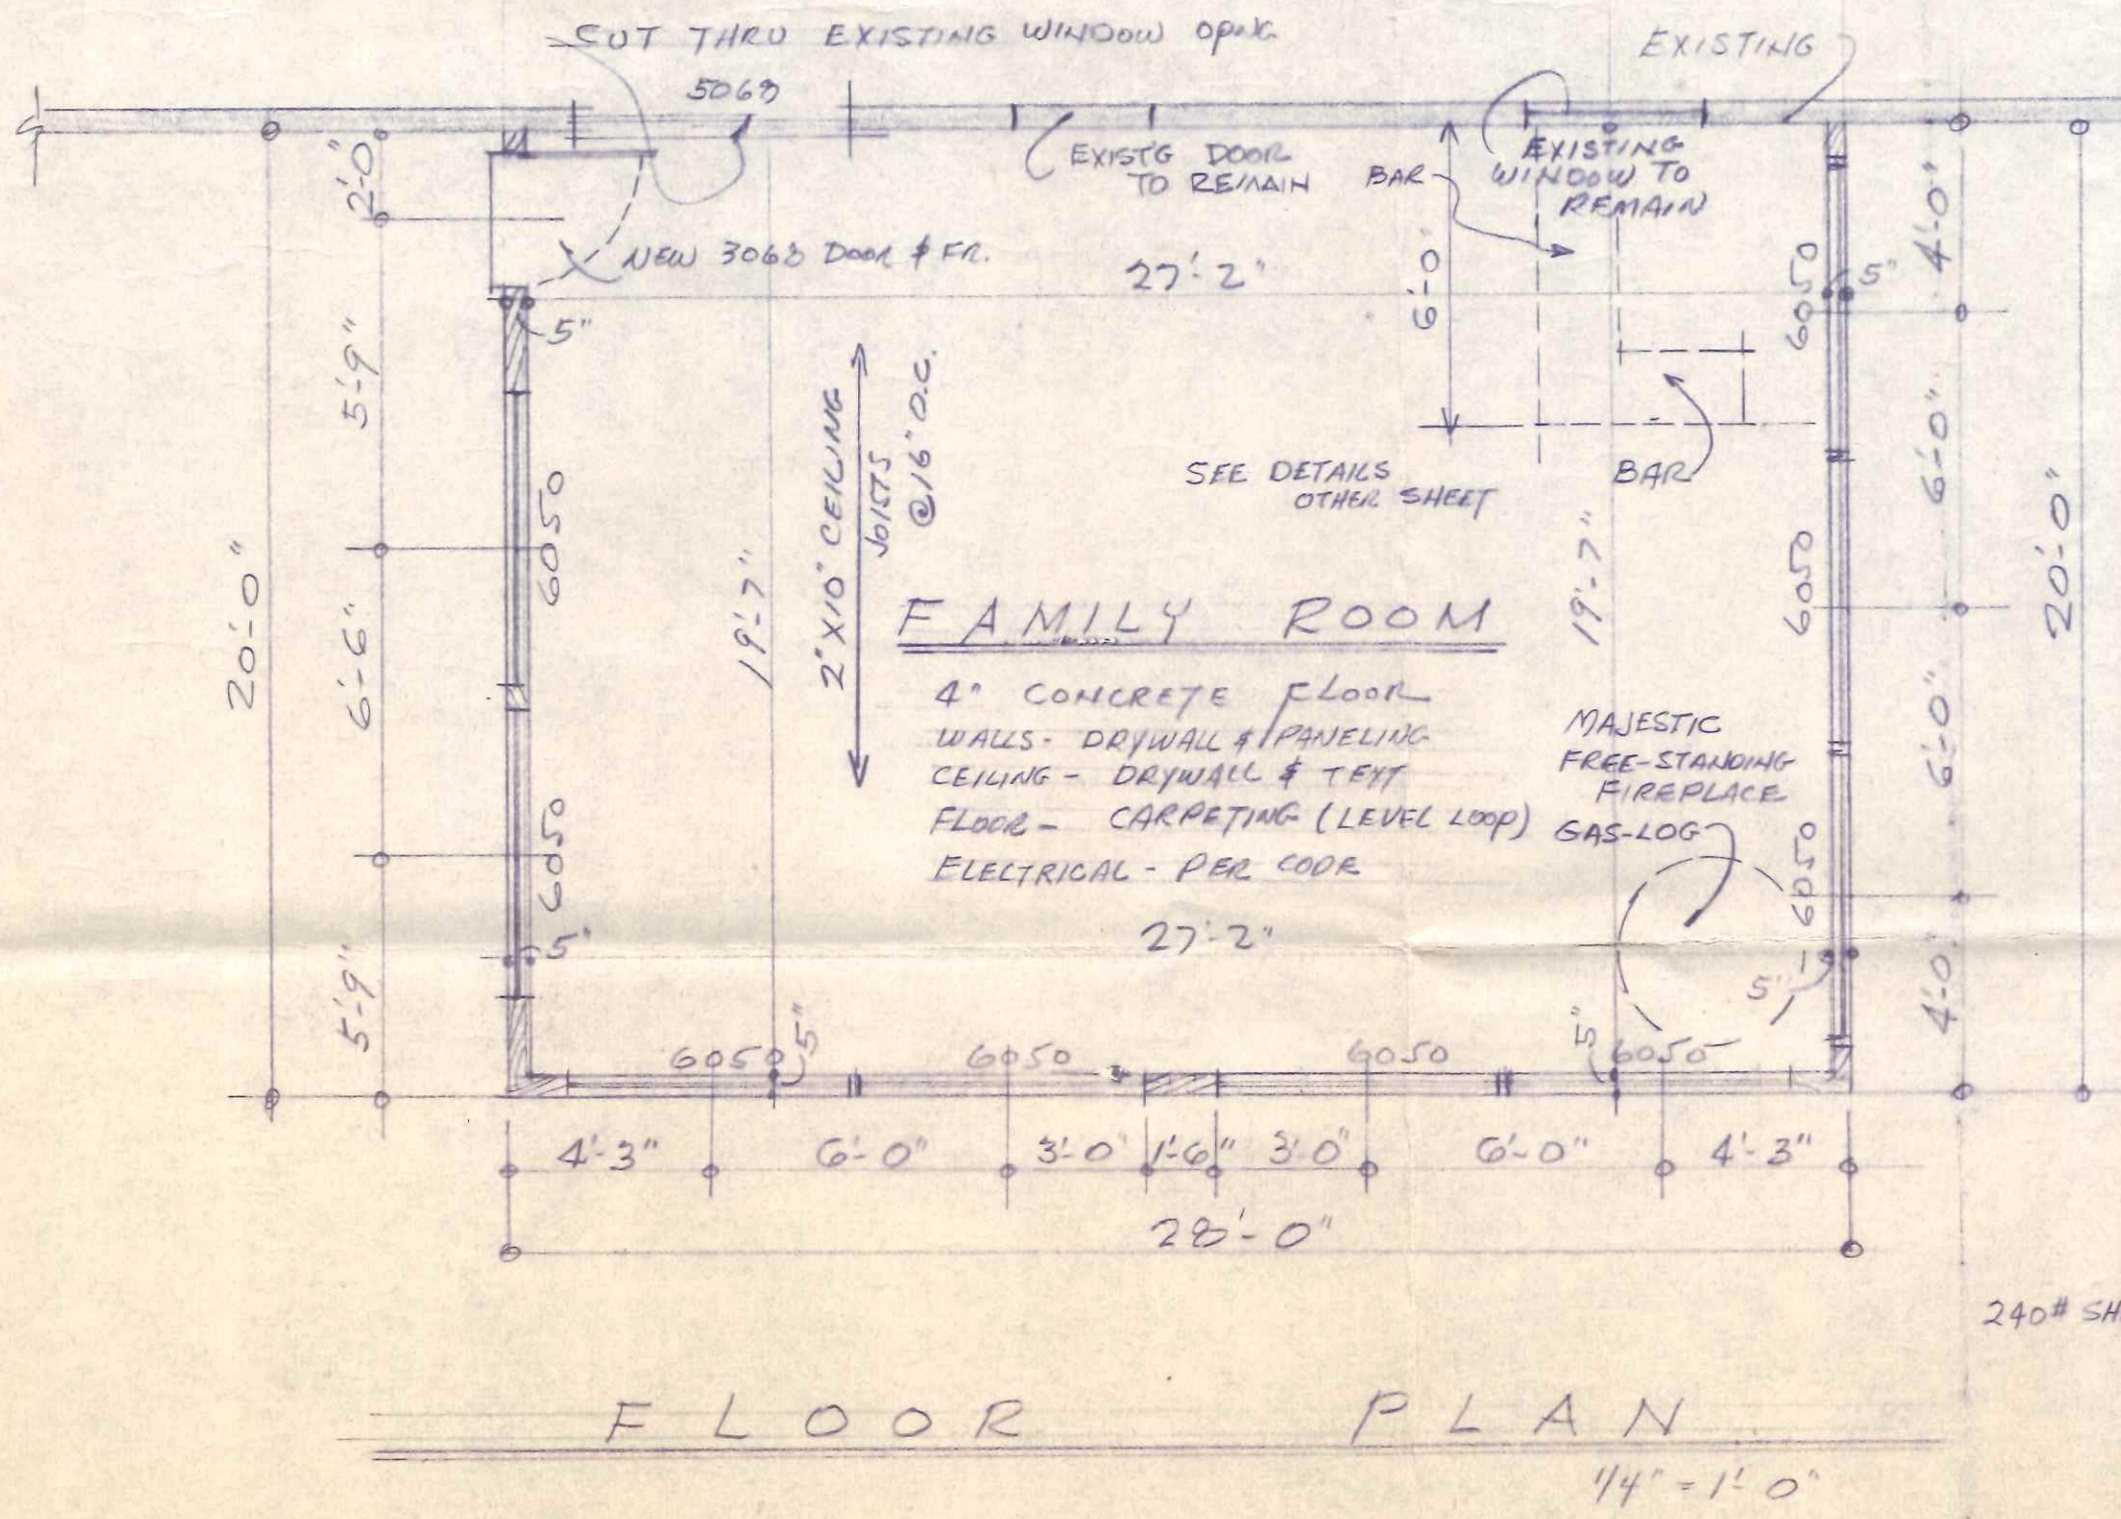 CUT THRU EXISTING WINDOW OPNG
EXISTING
5068
EXIST'G DOOR
TO REMAIN
BAR
EXISTING
WINDOW TO
REMAIN
2'-0"
4'-0"
NEW 3068 DOOR & FR.
27'-2"
6'-0"
6050
5"
5"
5'-9"
2"X10" CEILING
JOISTS
@16" O.C.
6'-0"
SEE DETAILS
OTHER SHEET
BAR
6050
20'-0"
6'-6"
19'-7"
19'-7"
6050
20'-0"
FAMILY ROOM
4" CONCRETE FLOOR
WALLS- DRYWALL & PANELING
CEILING - DRYWALL & TEXT
FLOOR - CARPETING (LEVEL LOOP)
ELECTRICAL - PER CODE
MAJESTIC
FREE-STANDING
FIREPLACE
GAS-LOG
6'-0"
6050
6050
27'-2"
5"
5'-9"
5"
4'-0"
5"
5"
6050
6050
6050
6050
4'-3"
6'-0"
3'-0"
1'-6"
3'-0"
6'-0"
4'-3"
28'-0"
240# SH
FLOOR PLAN
1/4" = 1'-0"